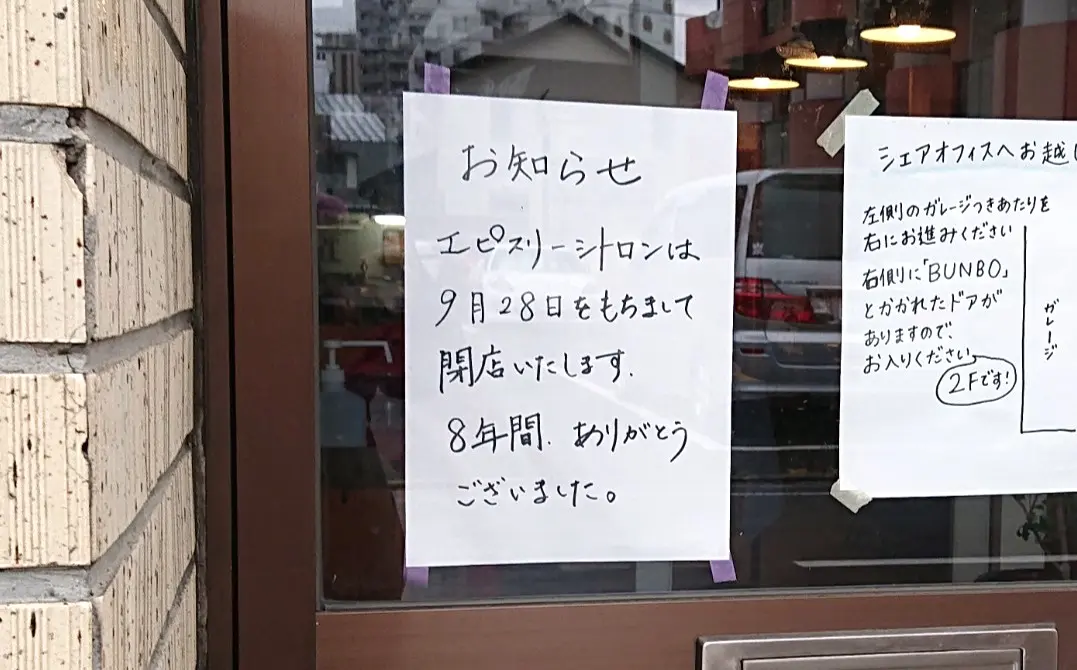 お知らせ
エピスリーシトロンは
9月28日をもちまして
閉店いたします.
8年間. ありがとう
ございました。
シェアオフィスへお越し
左側のガレージつきあたりを
右にお進みください
右側に「BUNBO」
とかかれたドアが
ありますので、
お入りください
2Fです!
ガレージ